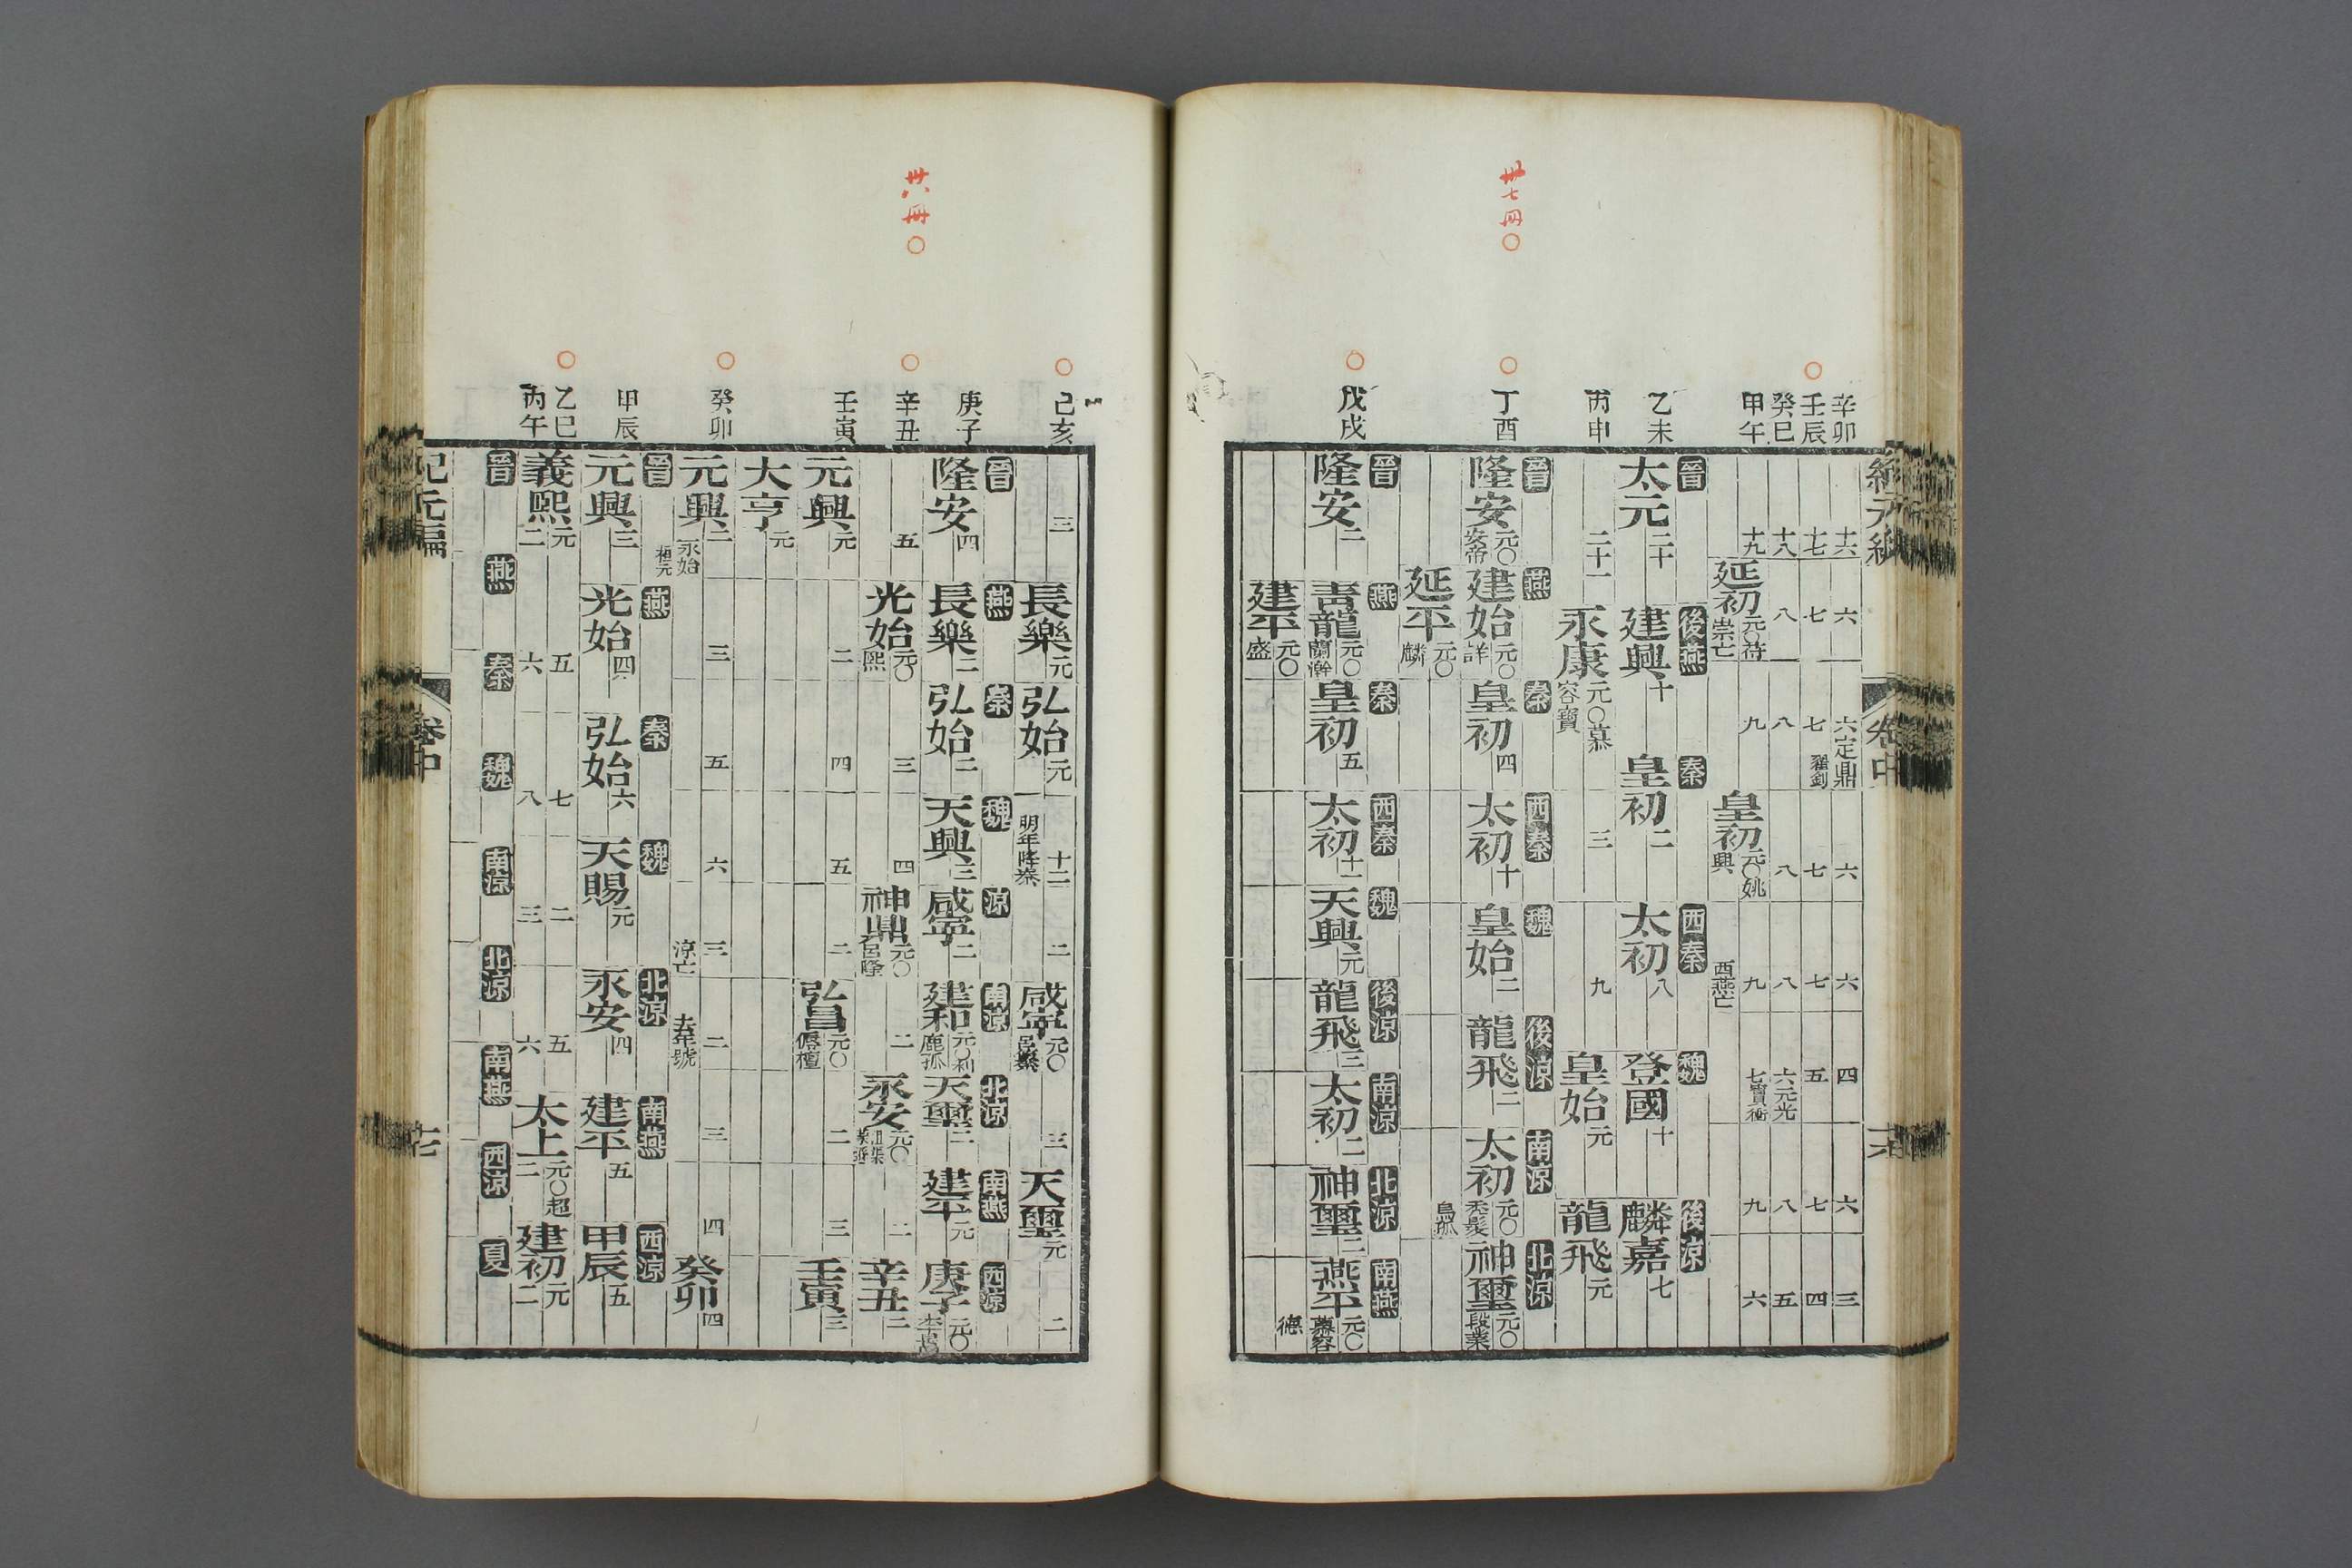 卅七冊〇
辛卯
壬辰
癸巳
甲午
乙未
丙申
丁酉
戊戌
十六 六 六定鼎 六 六 四 六 三
十七 七 七翟釗 七 七 五 七 四
十八 八 八 八 八 六元光 八 五
十九 延初元〇苻崇亡 九 皇初元〇姚興 九西燕亡 七竇衝 九 六
晉 後燕 秦 西秦 魏 後涼
太元二十 建興十 皇初二 太初八 登國十 麟嘉七
二十一 永康元〇慕容寶 三 九 皇始元 龍飛元
晉 燕 秦 西秦 魏 後涼 南涼 北涼
隆安元〇安帝 建始元〇詳 皇初四 太初十 皇始二 龍飛二 太初元〇禿髮烏孤 神璽元〇段業
延平元〇麟
晉 燕 秦 西秦 魏 後涼 南涼 北涼 南燕
隆安二 青龍元〇蘭瀚 皇初五 太初十一 天興元 龍飛三 太初二 神璽二 燕平元〇慕容德
建平元〇盛
卅八冊〇
己亥
庚子
辛丑
壬寅
癸卯
甲辰
乙巳
丙午
三 長樂元 弘始元 十二明年降秦 二 咸寧元〇呂纂 三 天璽元 二
晉 燕 秦 魏 涼 南涼 北涼 南燕 西涼
隆安四 長樂二 弘始二 天興三 咸寧二 建和元〇利鹿孤 天璽二 建平元 庚子元〇李暠
五 光始元〇熙 三 四 神鼎元〇呂隆 二 永安元〇沮渠蒙遜 二 辛丑二
元興元 二 四 五 二 弘昌元〇傉檀 二 三 壬寅三
大亨元
元興二永始桓元 三 五 六 三涼亡 二去年號 三 四 癸卯四
晉 燕 秦 魏 北涼 南燕 西涼
元興三 光始四 弘始六 天賜元 永安四 建平五 甲辰五
義熙元 五 七 二 五 太上元〇超 建初元
二 六 八 三 六 二 二
晉 燕 秦 魏 南涼 北涼 南燕 西涼 夏
紀元編
卷中